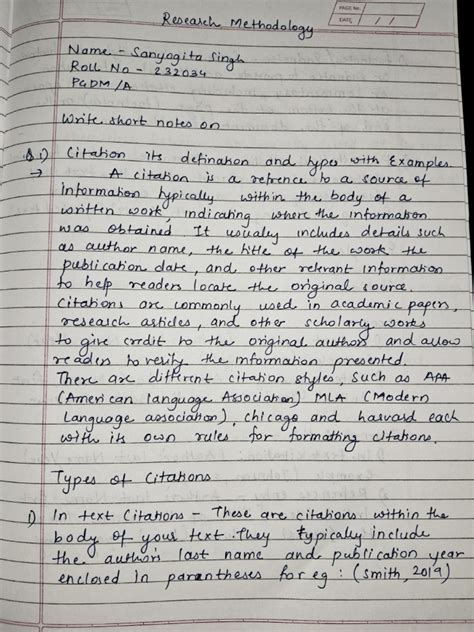 PAGE No.
DATE / /
Research Methodology
Name - Sanyogita Singh
Roll No - 232034
PGDM/A
Write short notes on
Q.1) Citation its defination and types with Examples.
→ A citation is a refrence to a source of
Information typically within the body of a
written work, indicating where the information
was obtained It usually includes details such
as author name, the title of the work the
publication date, and other relevant information
to help readers locate the original source.
Citations are commonly used in academic papers,
research articles, and other scholarly works
to give crdit to the original authors and allow
readers to verify the information presented.
There are different citation styles, such as APA
(American language Association) MLA (Modern
Language association), chicago and harvard each
with its own rules for formatting citations.
Types of Citations
1) In text Citations - These are citations within the
body of your text. They typically include
the author's last name and publication year
enclosed In parantheses for eg: (smith, 2019)